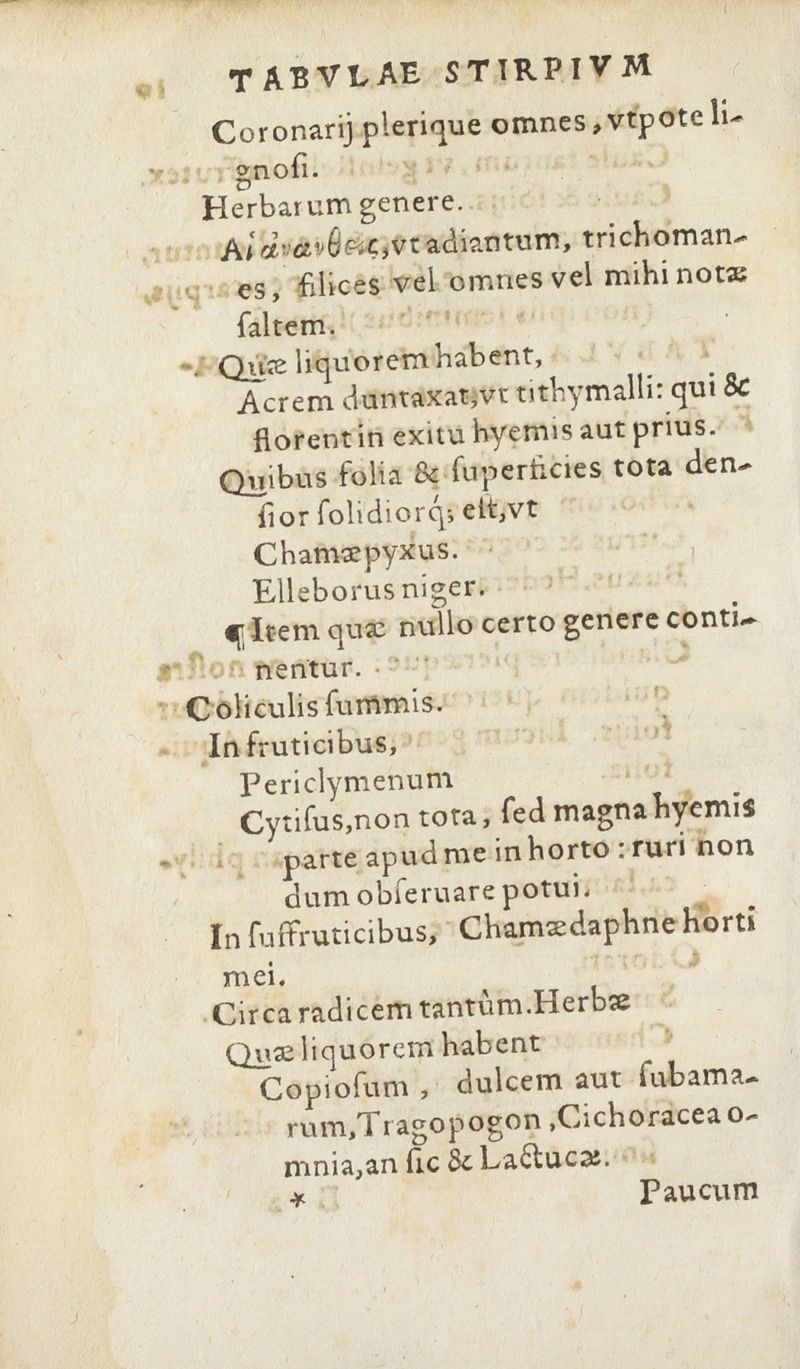 TABVLAE STIRPIVM
Coronarij plerique omnes, vtpote li-
gnoſi.
Herbarum genere.
Αἱ ἀνανθεῖς, vt adiantum, trichoman-
es, filices vel omnes vel mihi notæ
ſaltem.
Quæ liquorem habent,
Acrem duntaxat, vt tithymalli: qui &
florent in exitu hyemis aut prius.
Quibus folia & ſuperficies tota den-
ſior ſolidiorq; eſt, vt
Chamæpyxus.
Elleborus niger.
¶ Item quæ nullo certo genere conti-
nentur.
Coliculis ſummis.
In fruticibus,
Periclymenum
Cytiſus, non tota, ſed magna hyemis
parte apud me in horto : ruri non
dum obſeruare potui.
In ſuffruticibus, Chamædaphne horti
mei.
Circa radicem tantùm. Herbæ
Quæ liquorem habent
Copioſum, dulcem aut ſubama-
rum, Tragopogon, Cichoracea o-
mnia, an ſic & Lactucæ.
* Paucum